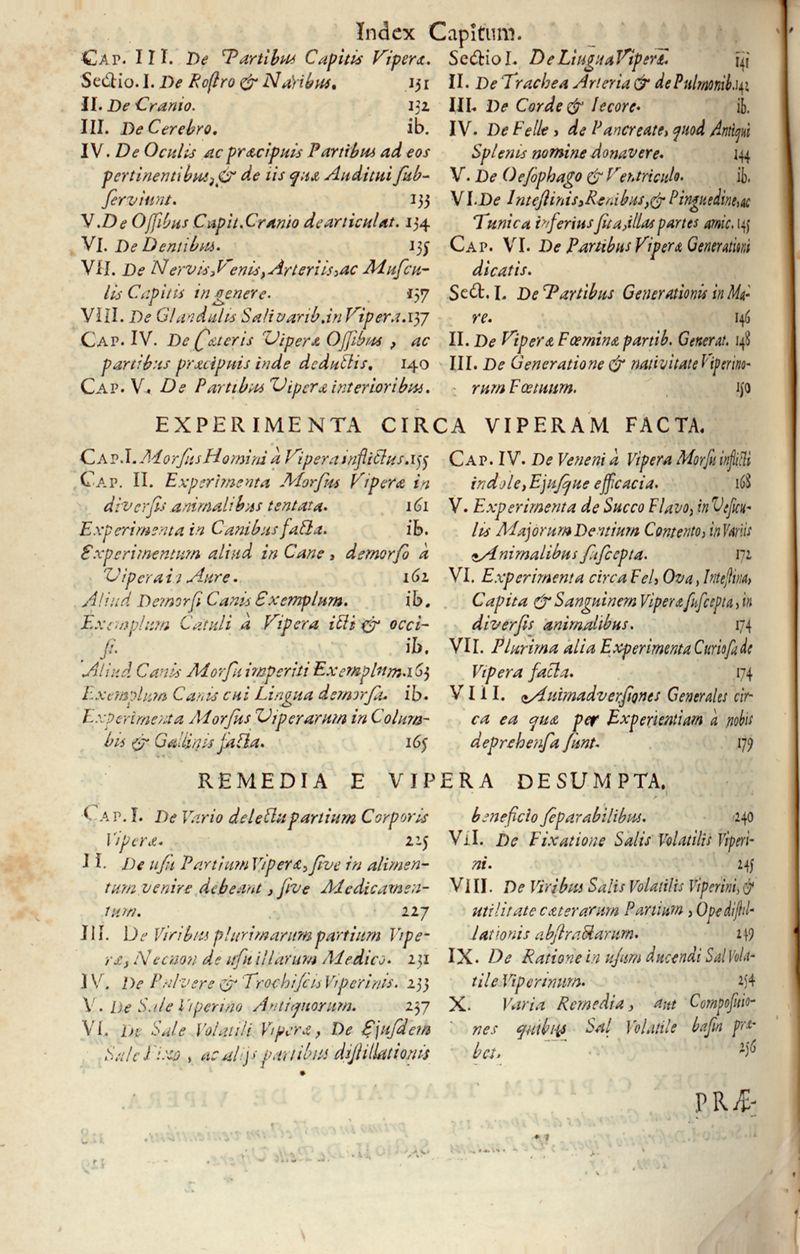 Index Capitum.
CAP. III. De Partibus Capitis Viperæ.
Sectio. I. De Rostro & Naribus. 131
II. De Cranio. 132
III. De Cerebro. ib.
IV. De Oculis ac præcipuis Partibus ad eos
pertinentibus, & de iis quæ Auditui sub-
serviunt. 133
V. De Ossibus Capit. Cranio dearticulat. 134
VI. De Dentibus. 135
VII. De Nervis, Venis, Arteriis, ac Muscu-
lis Capitis in genere. 137
VIII. De Glandulis Salivarib. in Vipera. 137
CAP. IV. De Cæteris Viperæ Ossibus, ac
partibus præcipuis inde deductis. 140
CAP. V. De Partibus Viperæ interioribus.
Sectio I. De Lingua Viperæ. 141
II. De Trachea Arteria & de Pulmonib. 142
III. De Corde & Iecore. ib.
IV. De Felle, de Pancreate, quod Antiqui
Splenis nomine donavere. 144
V. De Oesophago & Ventriculo. ib.
VI. De Intestinis, Renibus, & Pinguedine, ac
Tunica inferius sita, illas partes amic. 145
CAP. VI. De Partibus Viperæ Generationi
dicatis.
Sect. I. De Partibus Generationis in Ma-
re. 146
II. De Viperæ Fœminæ partib. Generat. 148
III. De Generatione & nativitate Viperino-
rum Fœtuum. 150
EXPERIMENTA CIRCA VIPERAM FACTA.
CAP. I. Morsus Homini à Vipera inflictus. 155
CAP. II. Experimenta Morsus Viperæ in
diversis animalibus tentata. 161
Experimenta in Canibus facta. ib.
Experimentum aliud in Cane, demorso à
Vipera in Aure. 162
Aliud Demorsi Canis Exemplum. ib.
Exemplum Catuli à Vipera icti & occi-
si. ib.
Aliud Canis Morsu imperiti Exemplum. 163
Exemplum Canis cui Lingua demorsa. ib.
Experimenta Morsus Viperarum in Colum-
bis & Gallinis facta. 165
CAP. IV. De Veneni à Vipera Morsu inflicti
indole, Ejusque efficacia. 168
V. Experimenta de Succo Flavo, in Vesicu-
lis Majorum Dentium Contento, in Variis
Animalibus suscepta. 172
VI. Experimenta circa Fel, Ova, Intestina,
Capita & Sanguinem Viperæ suscepta, in
diversis animalibus. 174
VII. Plurima alia Experimenta Curiosa de
Vipera facta. 174
VIII. Animadversiones Generales cir-
ca ea quæ per Experientiam à nobis
deprehensa sunt. 179
REMEDIA E VIPERA DESUMPTA.
CAP. I. De Vario delectu partium Corporis
Viperæ. 225
II. De usu Partium Viperæ, sive in alimen-
tum venire debeant, sive Medicamen-
tum. 227
III. De Viribus plurimarum partium Vipe-
ræ, Necnon de usu illarum Medico. 231
IV. De Pulvere & Trochiscis Viperinis. 233
V. De Sale Viperino Antiquorum. 237
VI. De Sale Volatili Viperæ, De Ejusdem
Sale Fixo, ac alijs partibus distillationis
beneficio separabilibus. 240
VII. De Fixatione Salis Volatilis Viperi-
ni. 245
VIII. De Viribus Salis Volatilis Viperini, &
utilitate cæterarum Partium, Ope distil-
lationis abstractarum. 249
IX. De Ratione in usum ducendi Sal Vola-
tile Viperinum. 254
X. Varia Remedia, aut Composuio-
nes quibus Sal Volatile basin præ-
bet. 256
PRÆ-